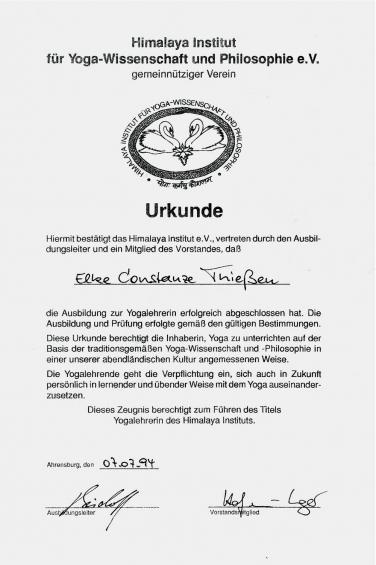 Himalaya Institut
für Yoga-Wissenschaft und Philosophie e.V.
gemeinnütziger Verein
HIMALAYA INSTITUT FÜR YOGA-WISSENSCHAFT UND PHILOSOPHIE
योगः कर्मसु कौशलम्
Urkunde
Hiermit bestätigt das Himalaya Institut e.V., vertreten durch den Ausbil-
dungsleiter und ein Mitglied des Vorstandes, daß
Elke Constanze Thießen
die Ausbildung zur Yogalehrerin erfolgreich abgeschlossen hat. Die
Ausbildung und Prüfung erfolgte gemäß den gültigen Bestimmungen.
Diese Urkunde berechtigt die Inhaberin, Yoga zu unterrichten auf der
Basis der traditionsgemäßen Yoga-Wissenschaft und -Philosophie in
einer unserer abendländischen Kultur angemessenen Weise.
Die Yogalehrende geht die Verpflichtung ein, sich auch in Zukunft
persönlich in lernender und übender Weise mit dem Yoga auseinander-
zusetzen.
Dieses Zeugnis berechtigt zum Führen des Titels
Yogalehrerin des Himalaya Instituts.
Ahrensburg, den 07.07.94
Ausbildungsleiter Vorstandsmitglied